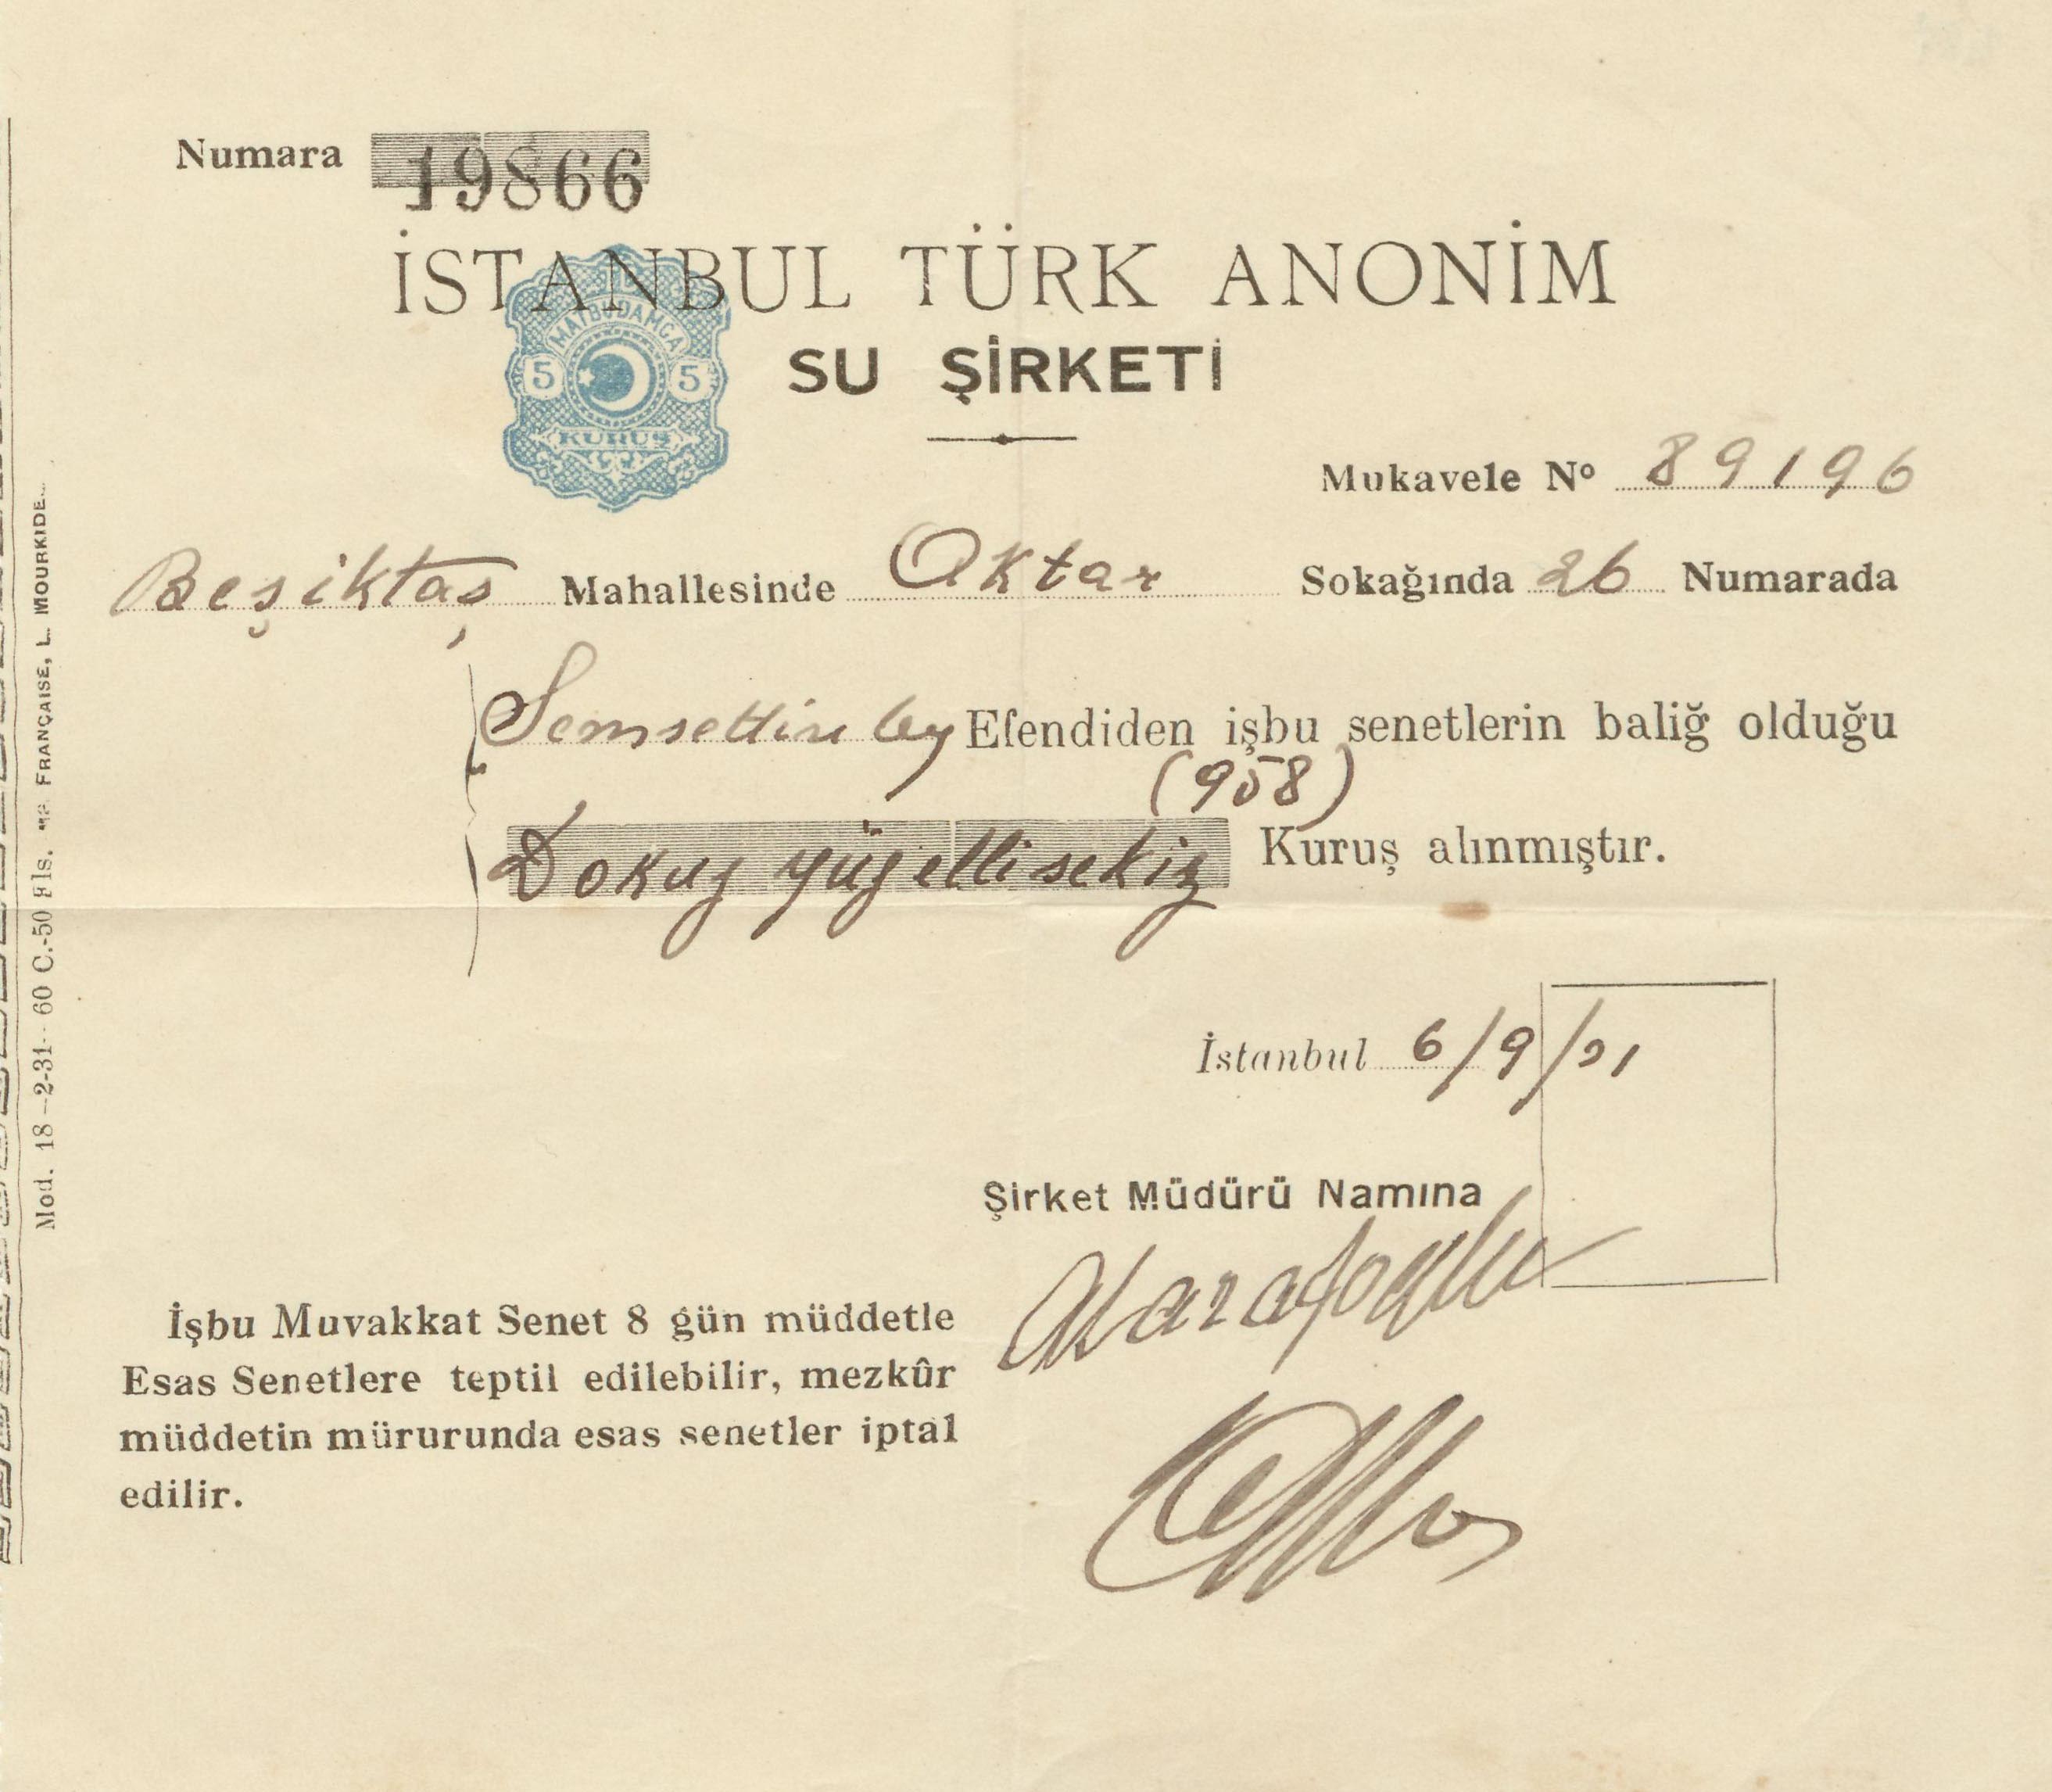 Numara 19866
İSTANBUL TÜRK ANONİM
SU ŞİRKETİ
MATBU DAMGA
5 5
KURUŞ
Mukavele Nº 89196
Beşiktaş Mahallesinde Aktar Sokağında 26 Numarada
Şemsettin bey Efendiden işbu senetlerin baliğ olduğu
(958)
Dokuz yüz elli sekiz Kuruş alınmıştır.
İstanbul 6/9/31
Şirket Müdürü Namına
İşbu Muvakkat Senet 8 gün müddetle
Esas Senetlere teptil edilebilir, mezkûr
müddetin mürurunda esas senetler iptal
edilir.
Mod. 18-2-31- 60 C.-50 FRANÇAISE, L. MOURKIDE